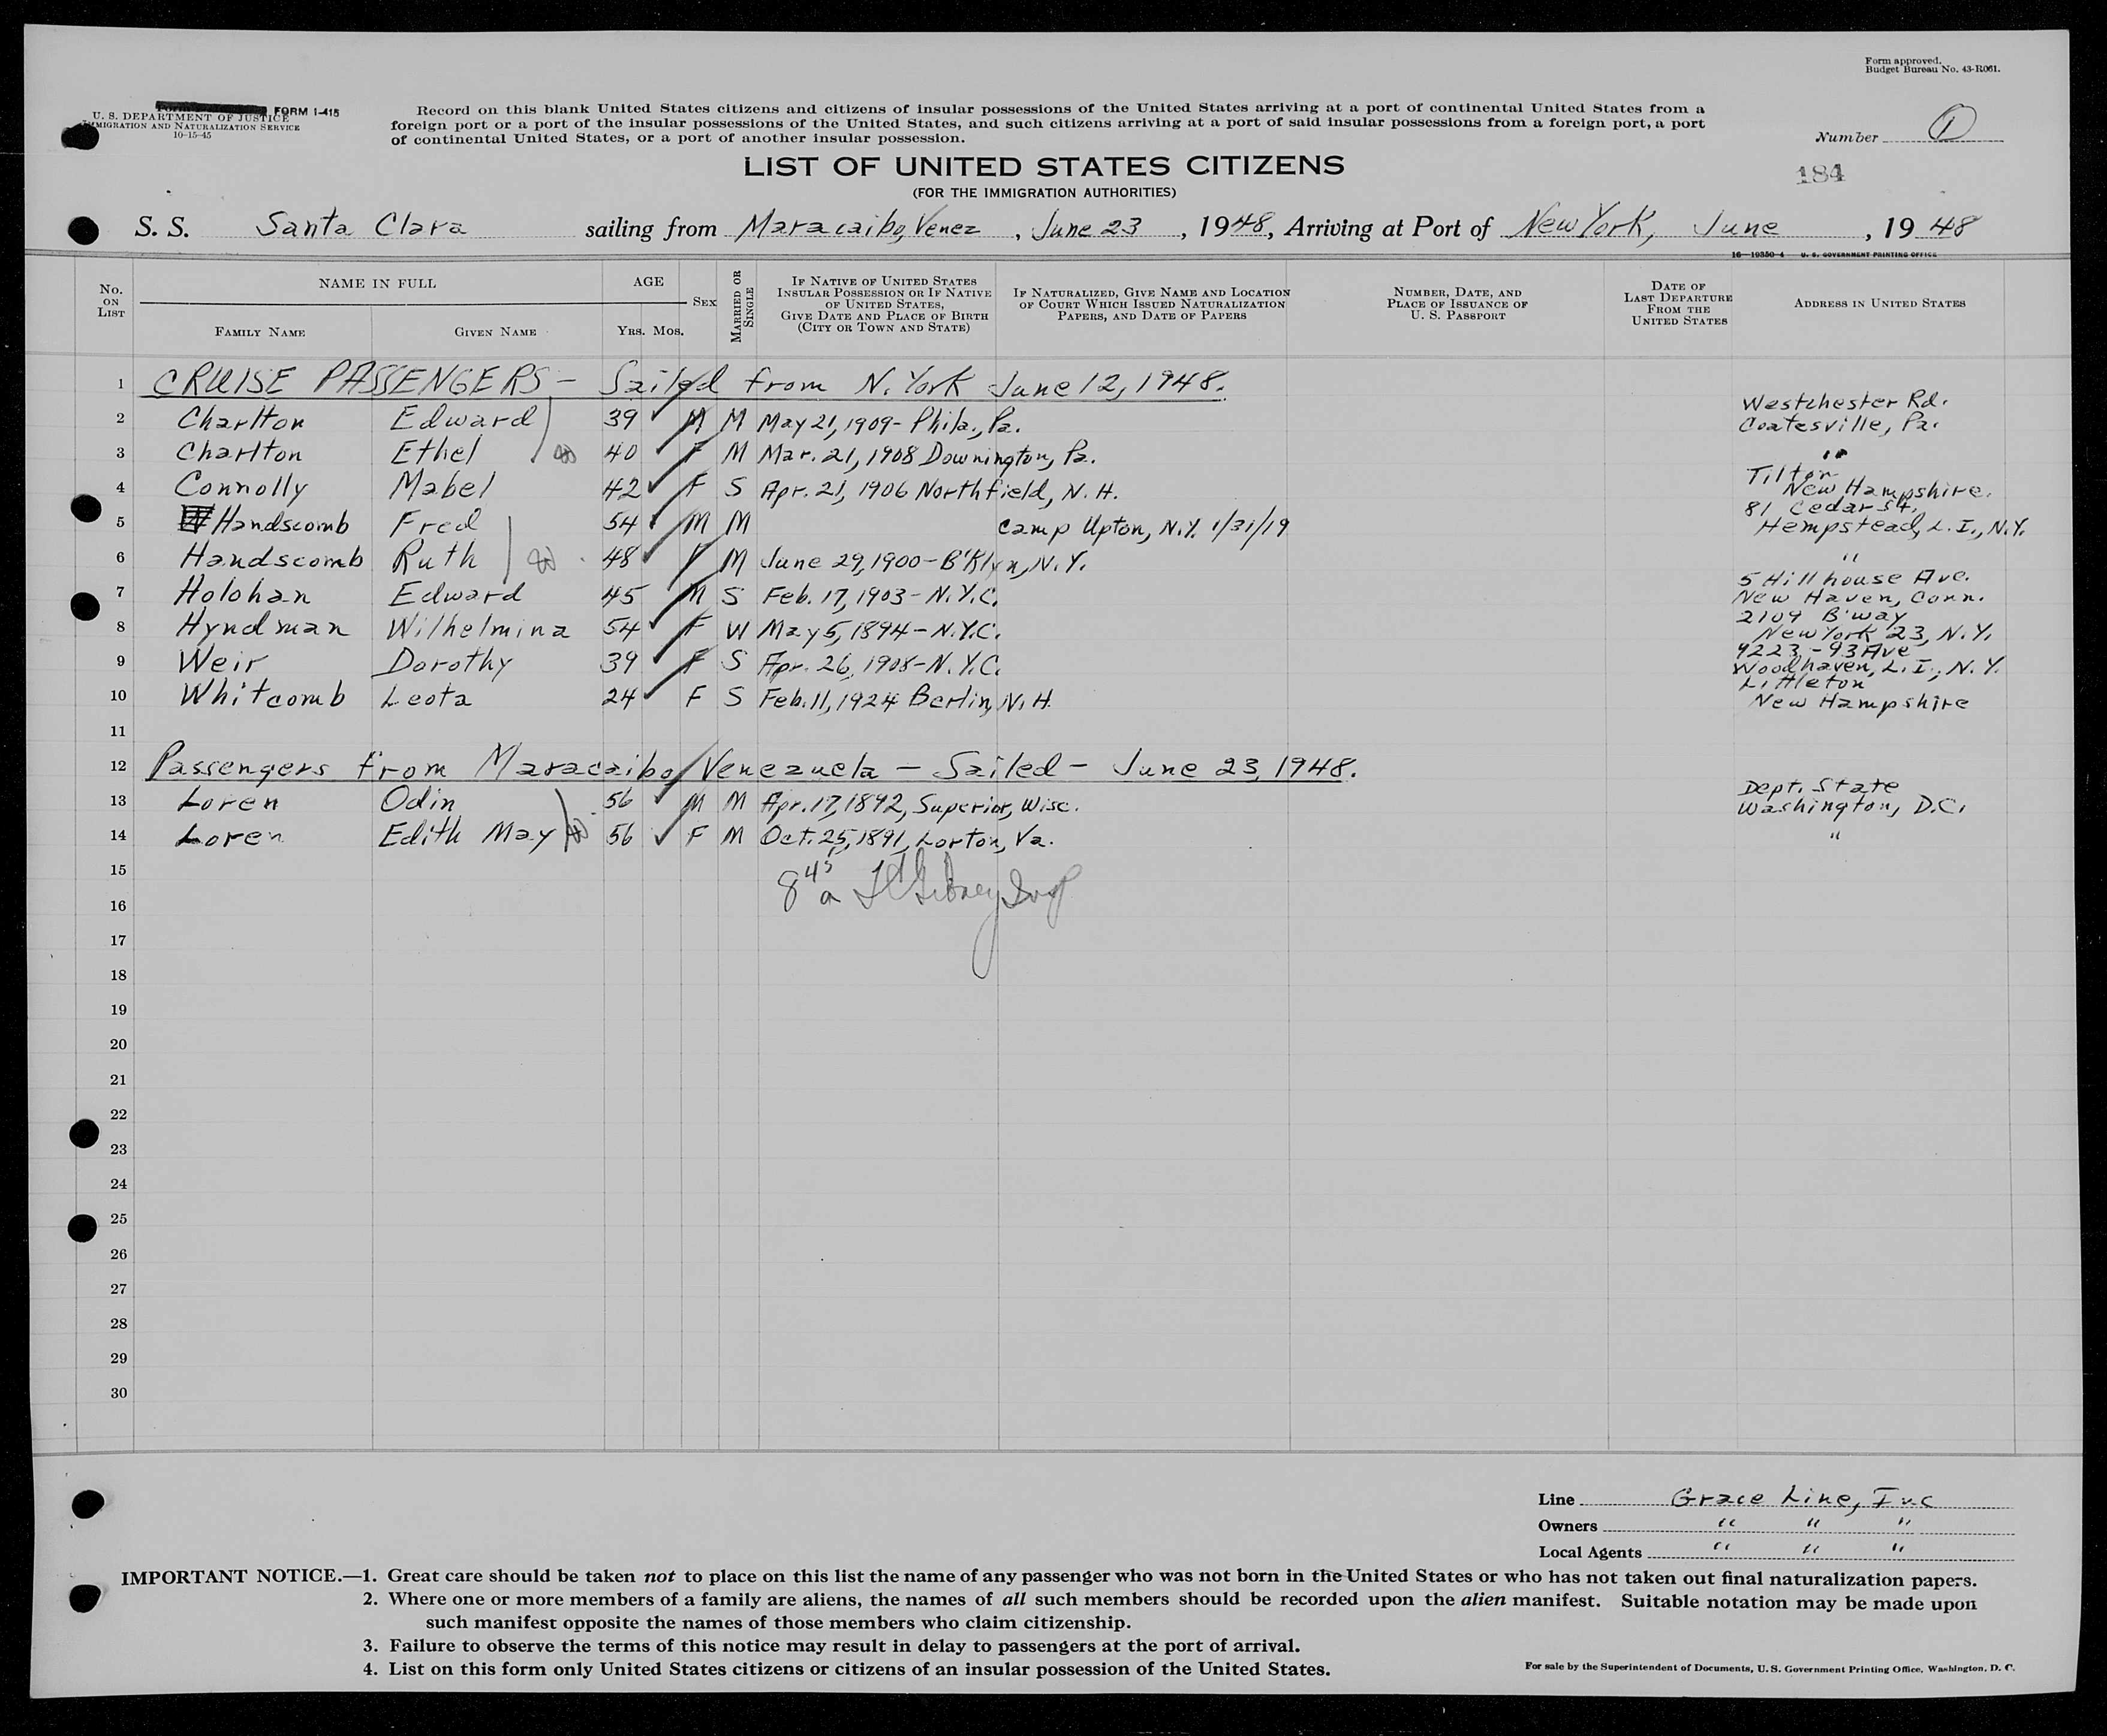 Form approved.
Budget Bureau No. 43-R061.
FORM I-415
U. S. DEPARTMENT OF JUSTICE
IMMIGRATION AND NATURALIZATION SERVICE
10-15-45
Record on this blank United States citizens and citizens of insular possessions of the United States arriving at a port of continental United States from a
foreign port or a port of the insular possessions of the United States, and such citizens arriving at a port of said insular possessions from a foreign port, a port
of continental United States, or a port of another insular possession.
Number 1
LIST OF UNITED STATES CITIZENS
184
(FOR THE IMMIGRATION AUTHORITIES)
S. S. Santa Clara sailing from Maracaibo, Venez, June 23, 1948, Arriving at Port of New York, June, 1948
16—19350-4 U. S. GOVERNMENT PRINTING OFFICE
No. ON LIST
NAME IN FULL
FAMILY NAME
GIVEN NAME
AGE
YRS. MOS.
SEX
MARRIED OR SINGLE
IF NATIVE OF UNITED STATES
INSULAR POSSESSION OR IF NATIVE
OF UNITED STATES,
GIVE DATE AND PLACE OF BIRTH
(CITY OR TOWN AND STATE)
IF NATURALIZED, GIVE NAME AND LOCATION
OF COURT WHICH ISSUED NATURALIZATION
PAPERS, AND DATE OF PAPERS
NUMBER, DATE, AND
PLACE OF ISSUANCE OF
U. S. PASSPORT
DATE OF
LAST DEPARTURE
FROM THE
UNITED STATES
ADDRESS IN UNITED STATES
1 CRUISE PASSENGERS - Sailed from N. York June 12, 1948.
2 Charlton Edward 39 M M May 21, 1909 - Phila., Pa. Westchester Rd. Coatesville, Pa.
3 Charlton Ethel 40 F M Mar. 21, 1908 Downington, Pa. "
4 Connolly Mabel 42 F S Apr. 21, 1906 Northfield, N. H. Tilton New Hampshire.
5 Handscomb Fred 54 M M Camp Upton, N.Y. 1/31/19 81 Cedar St., Hempstead, L. I., N.Y.
6 Handscomb Ruth 48 F M June 29, 1900 - B'Klyn, N. Y. "
7 Holohan Edward 45 M S Feb. 17, 1903 - N.Y.C. 5 Hillhouse Ave. New Haven, Conn.
8 Hyndman Wilhelmina 54 F W May 5, 1894 - N.Y.C. 2109 B'way New York 23, N.Y.
9 Weir Dorothy 39 F S Apr. 26, 1908 - N.Y.C. 9223 - 93 Ave Woodhaven, L. I., N. Y.
10 Whitcomb Leota 24 F S Feb. 11, 1924 Berlin, N. H. Littleton New Hampshire
11
12 Passengers from Maracaibo, Venezuela - Sailed - June 23, 1948.
13 Loren Odin 56 M M Apr. 17, 1892, Superior, Wisc. Dept. State Washington, D.C.
14 Loren Edith May 56 F M Oct. 25, 1891, Lorton, Va. "
15
8 45 a
16
17
18
19
20
21
22
23
24
25
26
27
28
29
30
Line Grace Line, Inc
Owners " " "
Local Agents " " "
IMPORTANT NOTICE.—1. Great care should be taken not to place on this list the name of any passenger who was not born in the United States or who has not taken out final naturalization papers.
2. Where one or more members of a family are aliens, the names of all such members should be recorded upon the alien manifest. Suitable notation may be made upon
such manifest opposite the names of those members who claim citizenship.
3. Failure to observe the terms of this notice may result in delay to passengers at the port of arrival.
4. List on this form only United States citizens or citizens of an insular possession of the United States.
For sale by the Superintendent of Documents, U. S. Government Printing Office, Washington, D. C.